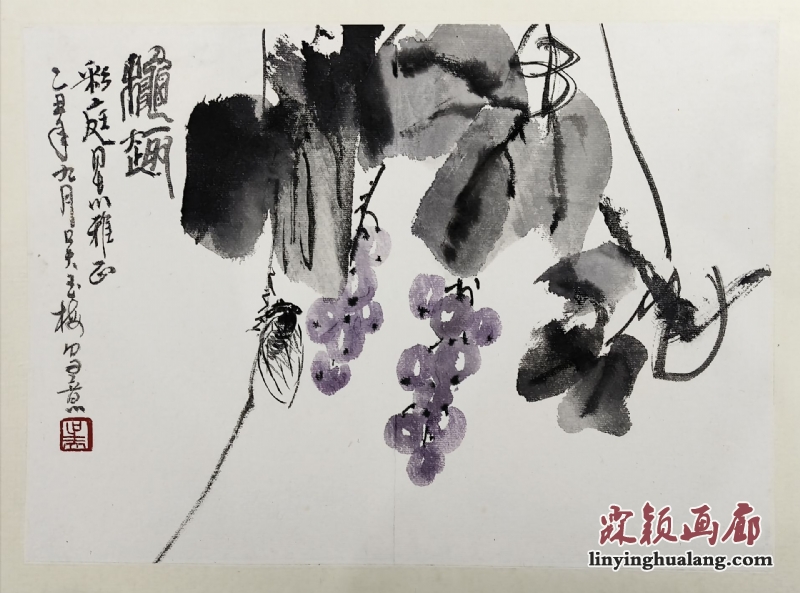 秋趣
彩庭吾兄雅正
乙丑年九月吴玉梅写意
霖颖画廊
linyinghualang.com